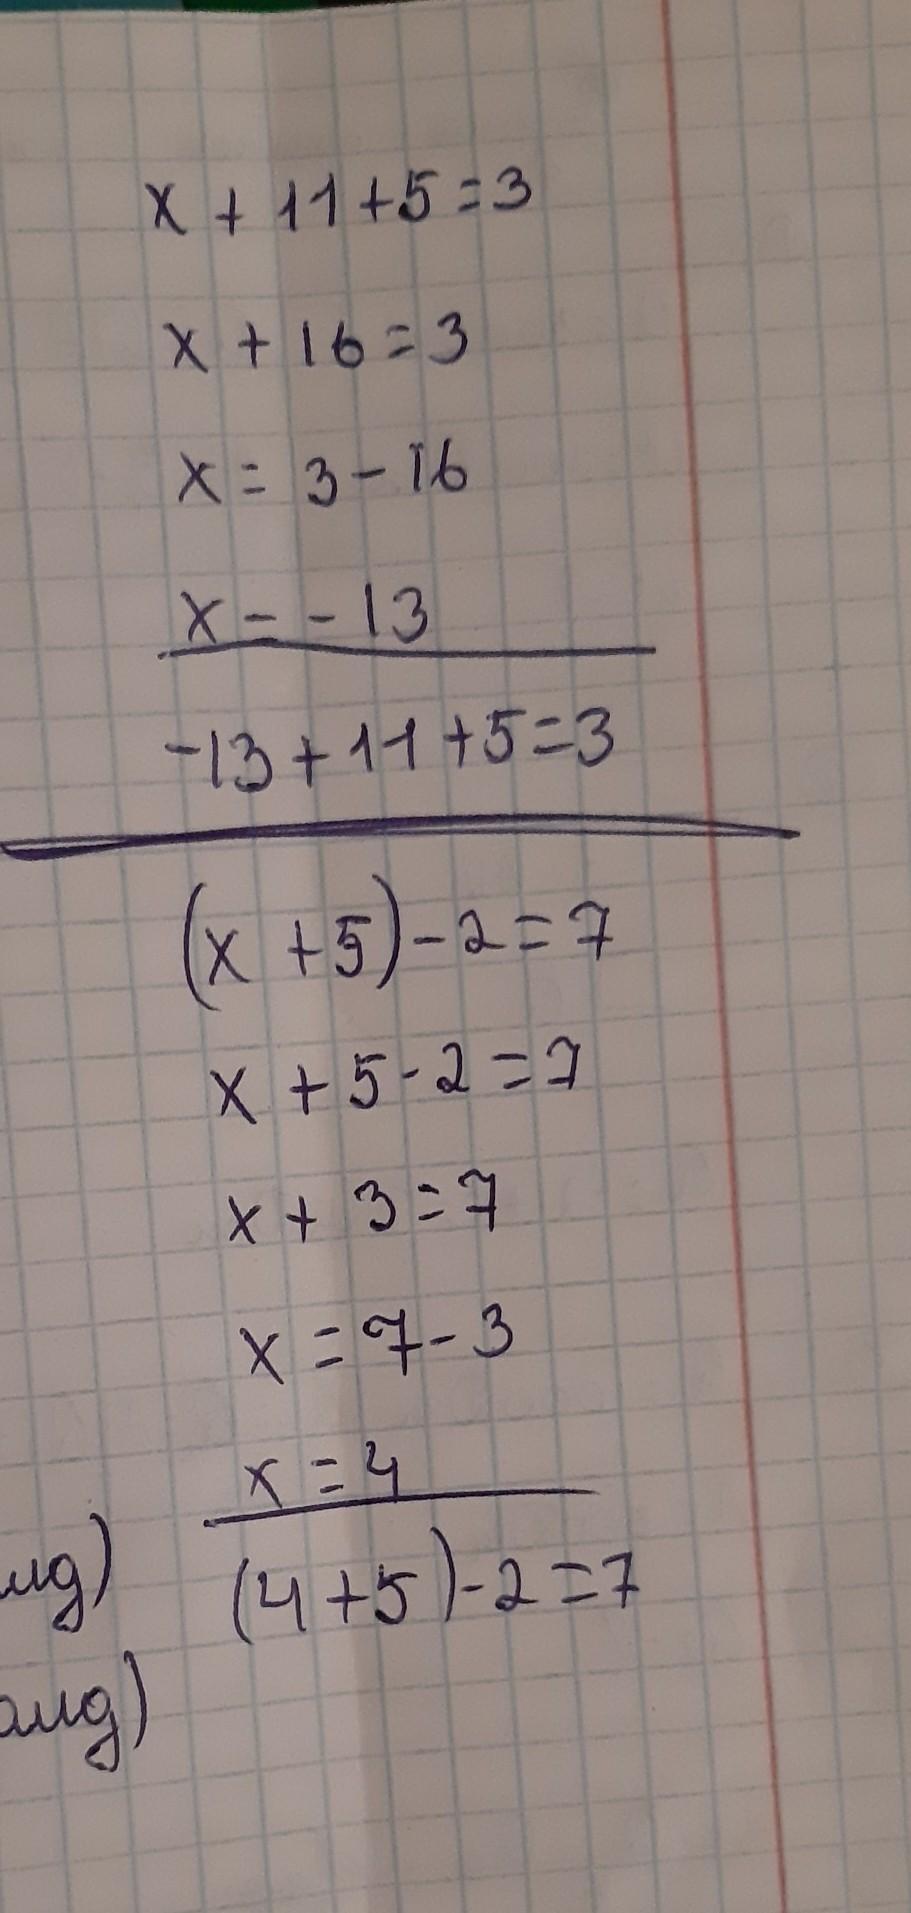 x + 11 + 5 = 3
x + 16 = 3
x = 3 - 16
x = -13
-13 + 11 + 5 = 3
(x + 5) - 2 = 7
x + 5 - 2 = 7
x + 3 = 7
x = 7 - 3
x = 4
(4 + 5) - 2 = 7